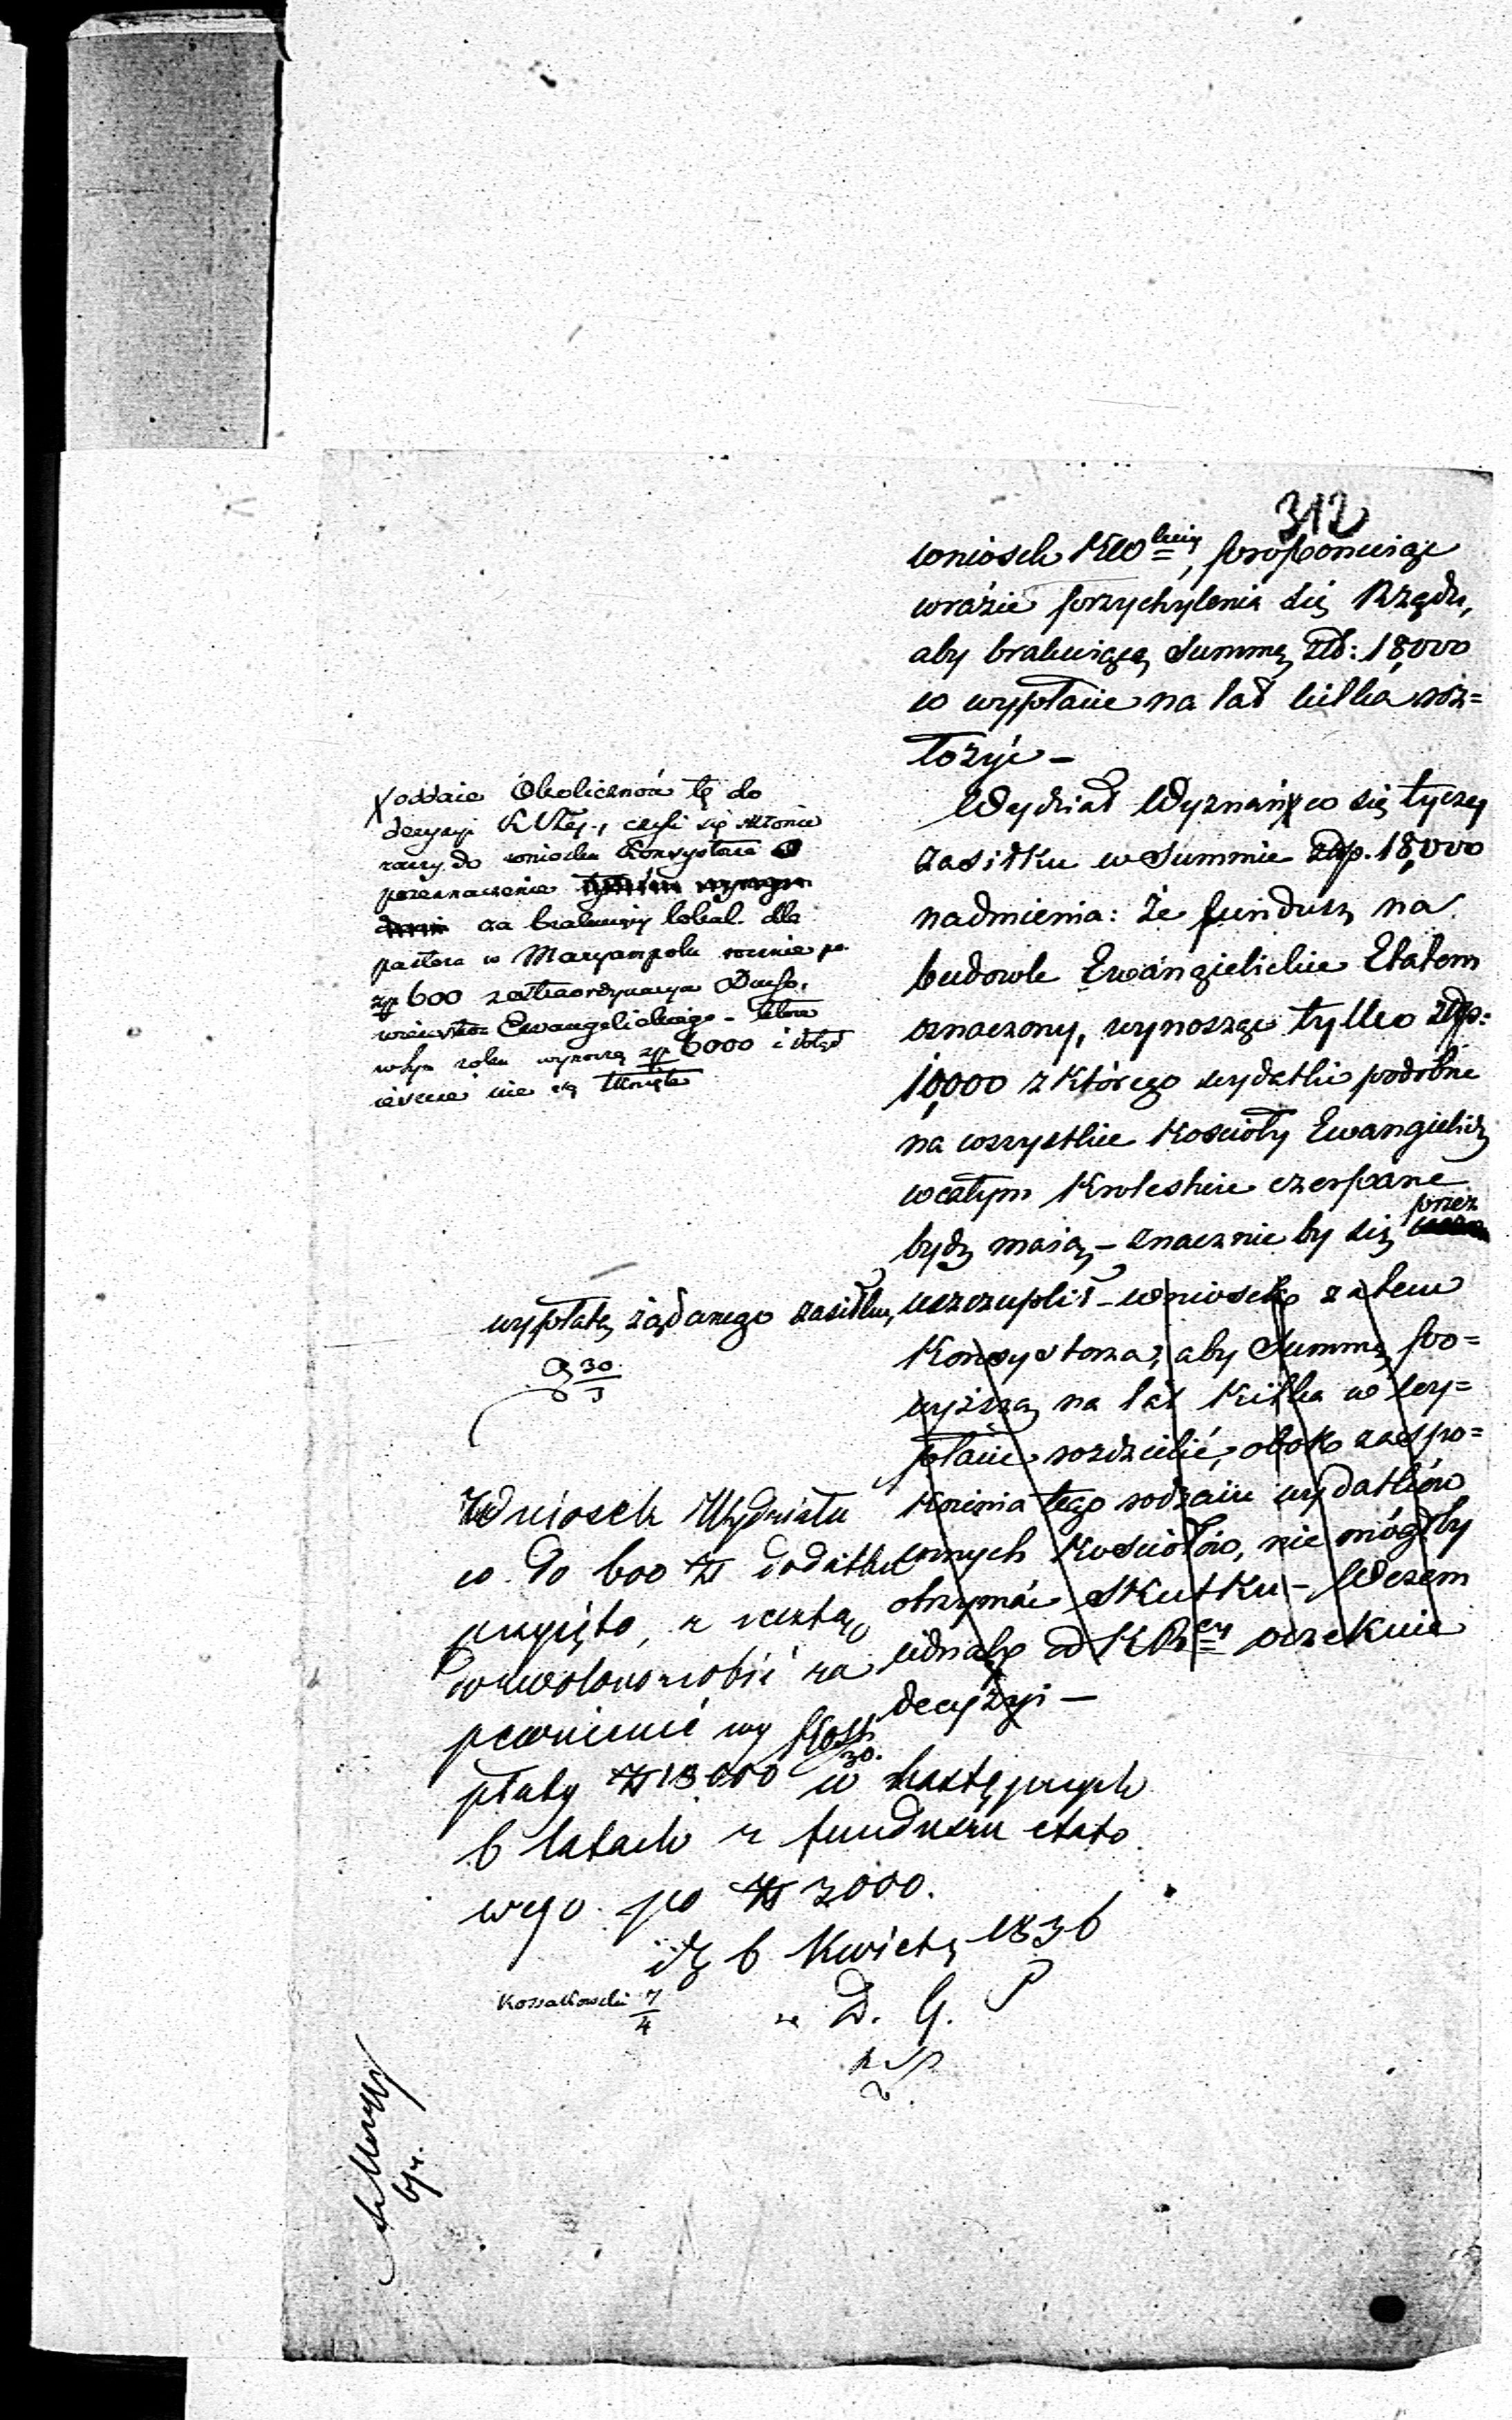 312
wniosek KWo<sup>kiej</sup>, proponuiąc
wrazie przychylenia się Rządu,
aby brakuiącą Summę Zł: 18,000
w wypłacie na lat kilka roz=
łożyć –
Wydział Wyznań co się tyczy
Zasiłku w Summie Złp. 18,000
nadmienia: że fundusz na
budowle Ewangielickie Etatem
oznaczony, wynosząc tylko Złp:
10,000 z którego wydatki podobne
na wszystkie Kościoły Ewangielic
w całym Krolestwie czerpane
bydź maią, – znacznie by się przez
uszczuplił – wniosek zatem
Konsystorza, aby Summę po=
wyższą na lat Kilka w wy=
płacie rozdzielić, obok zaspo=
koienia tego rodzaiu wydatków
innych Kościołów, nie mógłby
otrzymać skutku –, Wczem
iednak od KR<sup>ey</sup> oczekuie
decyzyi –
X oddaie Okoliczność tę do
decyzyi KRzej., czyli się skłonić
raczy do wniosku Konsystorza
przeznaczenie
za brakuiący lokal dla
pastora w Maryampolu rocznie po
zp 600 z extraordynaryi Ducho.
wieństwa Ewangelickiego – które
w tym roku wynoszą zp 6000 i dotąd
ieszcze nie są tknięte
wypłatę żądanego zasiłku,
30
3
Wniosek Wydziału
co do 600 Zł dodatku
przyięto, z resztą
dozwolono zrobić za
pewnienie wy
płaty Zł 18.000 w następnych
6 latach z funduszu etato
wego po Zł 3000.
dz 6 Kwietn 1836
za D. G.
Kossakowski 7
4